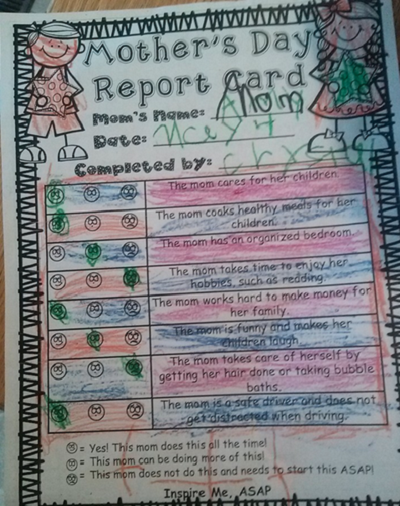 Mother's Day
Report Card
Mom's Name: Mom
Date:
Completed by:
The mom cares for her children.
The mom cooks healthy meals for her
children.
The mom has an organized bedroom.
The mom takes time to enjoy her
hobbies, such as redding.
The mom works hard to make money for
her family.
The mom is funny and makes her
children laugh.
The mom takes care of herself by
getting her hair done or taking bubble
baths.
The mom is a safe driver and does not
get distracted when driving.
= Yes! This mom does this all the time!
= This mom can be doing more of this!
= This mom does not do this and needs to start this ASAP!
Inspire Me, ASAP